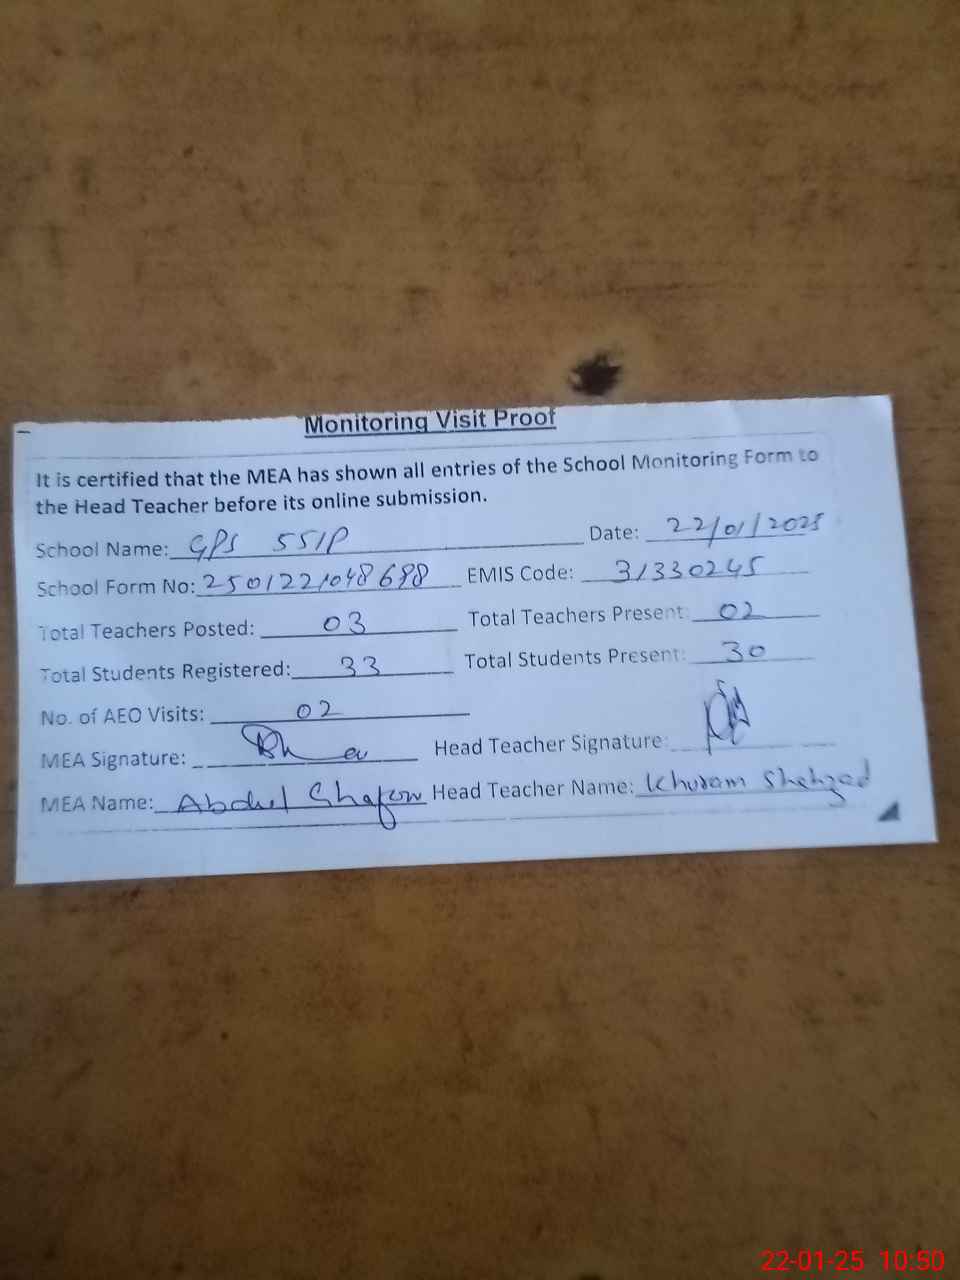 Monitoring Visit Proof
It is certified that the MEA has shown all entries of the School Monitoring Form to
the Head Teacher before its online submission.
School Name: GPS 55/P Date: 22/01/2025
School Form No: 2501221048698 EMIS Code: 31330245
Total Teachers Posted: 03 Total Teachers Present: 02
Total Students Registered: 33 Total Students Present: 30
No. of AEO Visits: 02
MEA Signature: Head Teacher Signature:
MEA Name: Abdul Shakoor Head Teacher Name: Khuram Shehzad
22-01-25 10:50